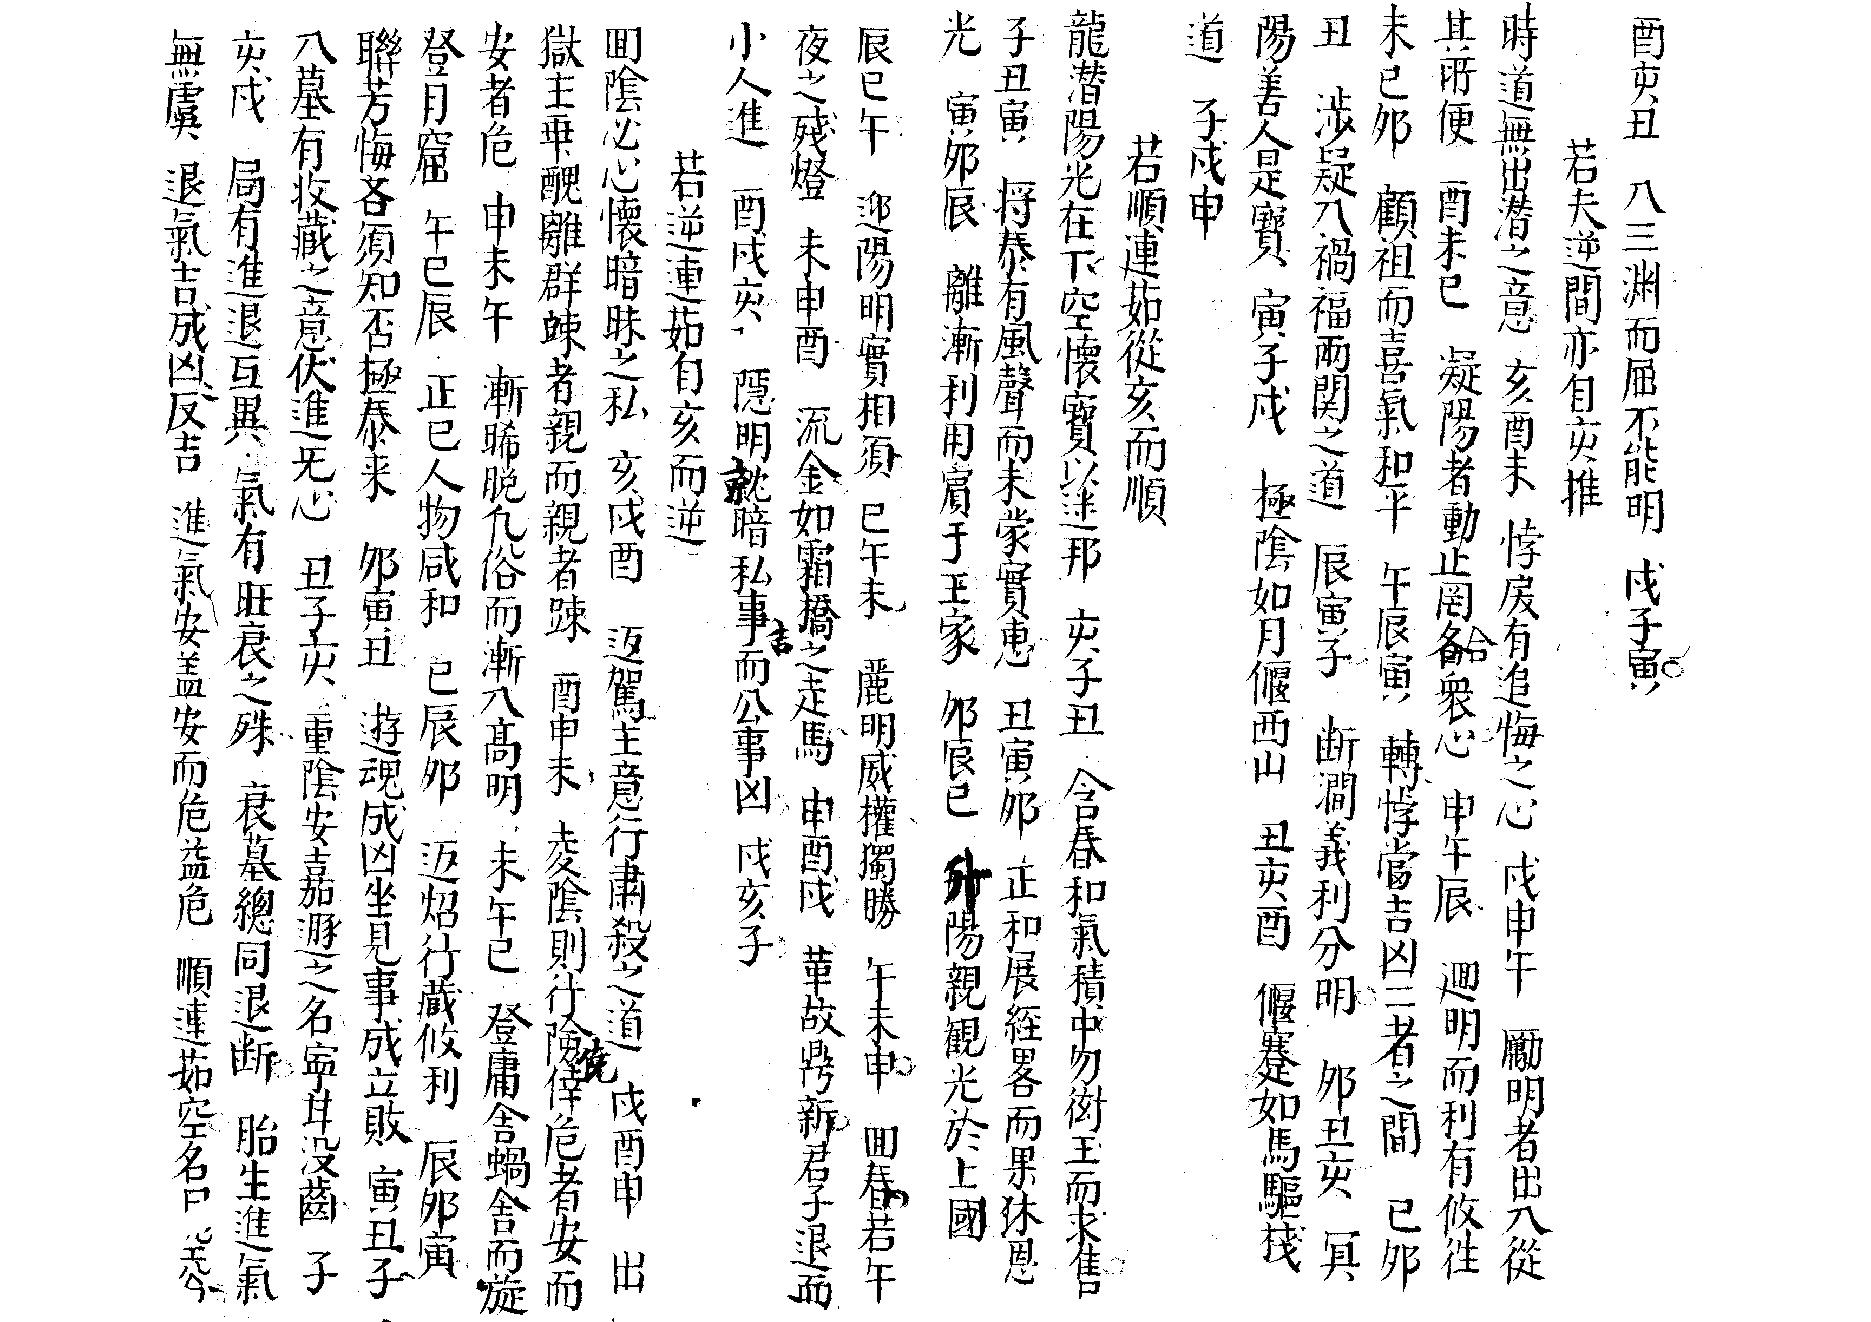 酉亥丑　入三渊而屈不能明　戌子寅
若夫逆間亦自亥推
時道無出潜之意　亥酉未　悖戾有追悔之心　戌申午　勵明者出入從
其所便　酉未巳　凝陽者動止罔咎衆心　申午辰　迴明而利有攸往
未巳夘　顧祖而喜氣和平　午辰寅　轉悖當吉凶二者之間　巳夘
丑　涉疑入禍福兩関之道　辰寅子　断澗義利分明　夘丑亥　冥
陽善人是寶　寅子戌　極陰如月偃西山　丑亥酉　偃蹇如馬驅棧
道　子戌申
若順連茹從亥而順
龍潜陽光在下空懐寶以迷邦　亥子丑　含春和氣積中勿衒玉而求售
子丑寅　将泰有風聲而未蒙實惠　丑寅夘　正和展經畧而果沐恩
光　寅夘辰　離漸利用賓于王家　夘辰巳　升陽親観光於上國
辰巳午　迎陽明實相須　巳午未　麗明威權獨勝　午未申　回春若午
夜之残燈　未申酉　流金如霜橋之走馬　申酉戌　革故鼎新君子退而
小人進　酉戌亥　隠明就暗私事吉而公事凶　戌亥子
若逆連茹自亥而逆
回陰必心懐暗昧之私　亥戌酉　返駕主意行肅殺之道　戌酉申　出
獄主乗醜離群踈者親而親者踈　酉申未　凌陰則行險徼倖危者安而
安者危　申未午　漸晞脱凡俗而漸入髙明　未午巳　登庸舎蝸舎而旋
登月窟　午巳辰　正巳人物咸和　巳辰夘　返炤行藏攸利　辰夘寅
聯芳悔吝須知否極泰来　夘寅丑　逰魂成凶坐見事成立敗　寅丑子
入墓有收藏之意伏進无心　丑子亥　重陰安嘉遯之名寧甘没齒　子
亥戌　局有進退互異　氣有旺衰之殊　衰墓總同退断　胎生進氣
無虞　退氣吉成凶反吉　進氣安盖安而危益危　順連茹空名曰